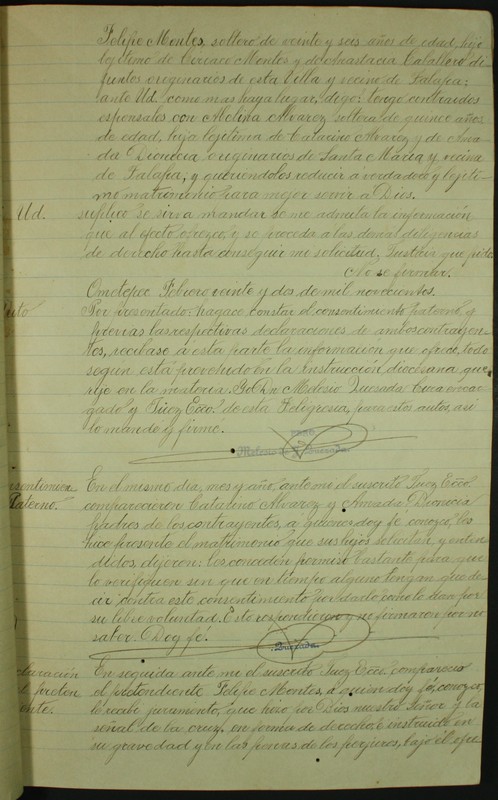 Felipe Montes, soltero de veinte y seis años de edad, hijo
legítimo de Ciriaco Montes y de Anastacia Caballero di-
funtos originarios de esta Villa y vecino de Jalapa;
ante Ud. como mas haya lugar, digo: tengo contraidos
esponsales con Melina Alvarez soltera de quince años
de edad, hija legítima de Catarino Alvarez y de Ama-
da Dionicia, originarios de Santa Maria y vecina
de Jalapa, y queriendolos reducir a verdadero y legíti-
mo matrimonio para mejor servir a Dios.
Ud. suplico se sirva mandar se me admita la información
que al efecto ofrezco, y se proceda a las demas diligencias
de derecho hasta conseguir mi solicitud, Justicia que pido.
No se firmar.
Ometepec Febrero veinte y dos de mil novecientos.
Por presentado: hagase constar el consentimiento paterno, y
previas las respectivas declaraciones de ambos contrayen-
tes, recibase a esta parte la información que ofrece, todo
segun está prevenido en la instrucción diocesana que
rije en la materia. Yo Dn Melesio Quesada Cura encar-
gado y Juez Ecco. de esta Feligresia, para estos autos, asi
lo mandé y firmo.
Melesio Quesada.
Consentimiento
Paterno.
En el mismo dia, mes y año, ante mi el suscrito Juez Ecco
comparecieron Catarino Alvarez y Amada Dionicia
padres de los contrayentes, a quienes doy fe conozco, les
hice presente el matrimonio que sus hijos solicitan, y enten-
didos, dijeron: les conceden permiso bastante para que
lo verifiquen sin que en tiempo alguno tengan que de-
cir contra este consentimiento por darlo como lo dan por
su libre voluntad. Esto respondieron y no firmaron por no
saber. Doy fé.
Quesada.
claración
l preten
ente.
En seguida ante mi el suscrito Juez Ecco. compareció
el pretendiente Felipe Montes, á quien doy fé, conozco,
le recibí juramento, que hizo por Dios nuestro Señor y la
señal de la cruz, en forma de derecho, é instruido en
su gravedad y en las penas de los perjuros, bajo él ofre